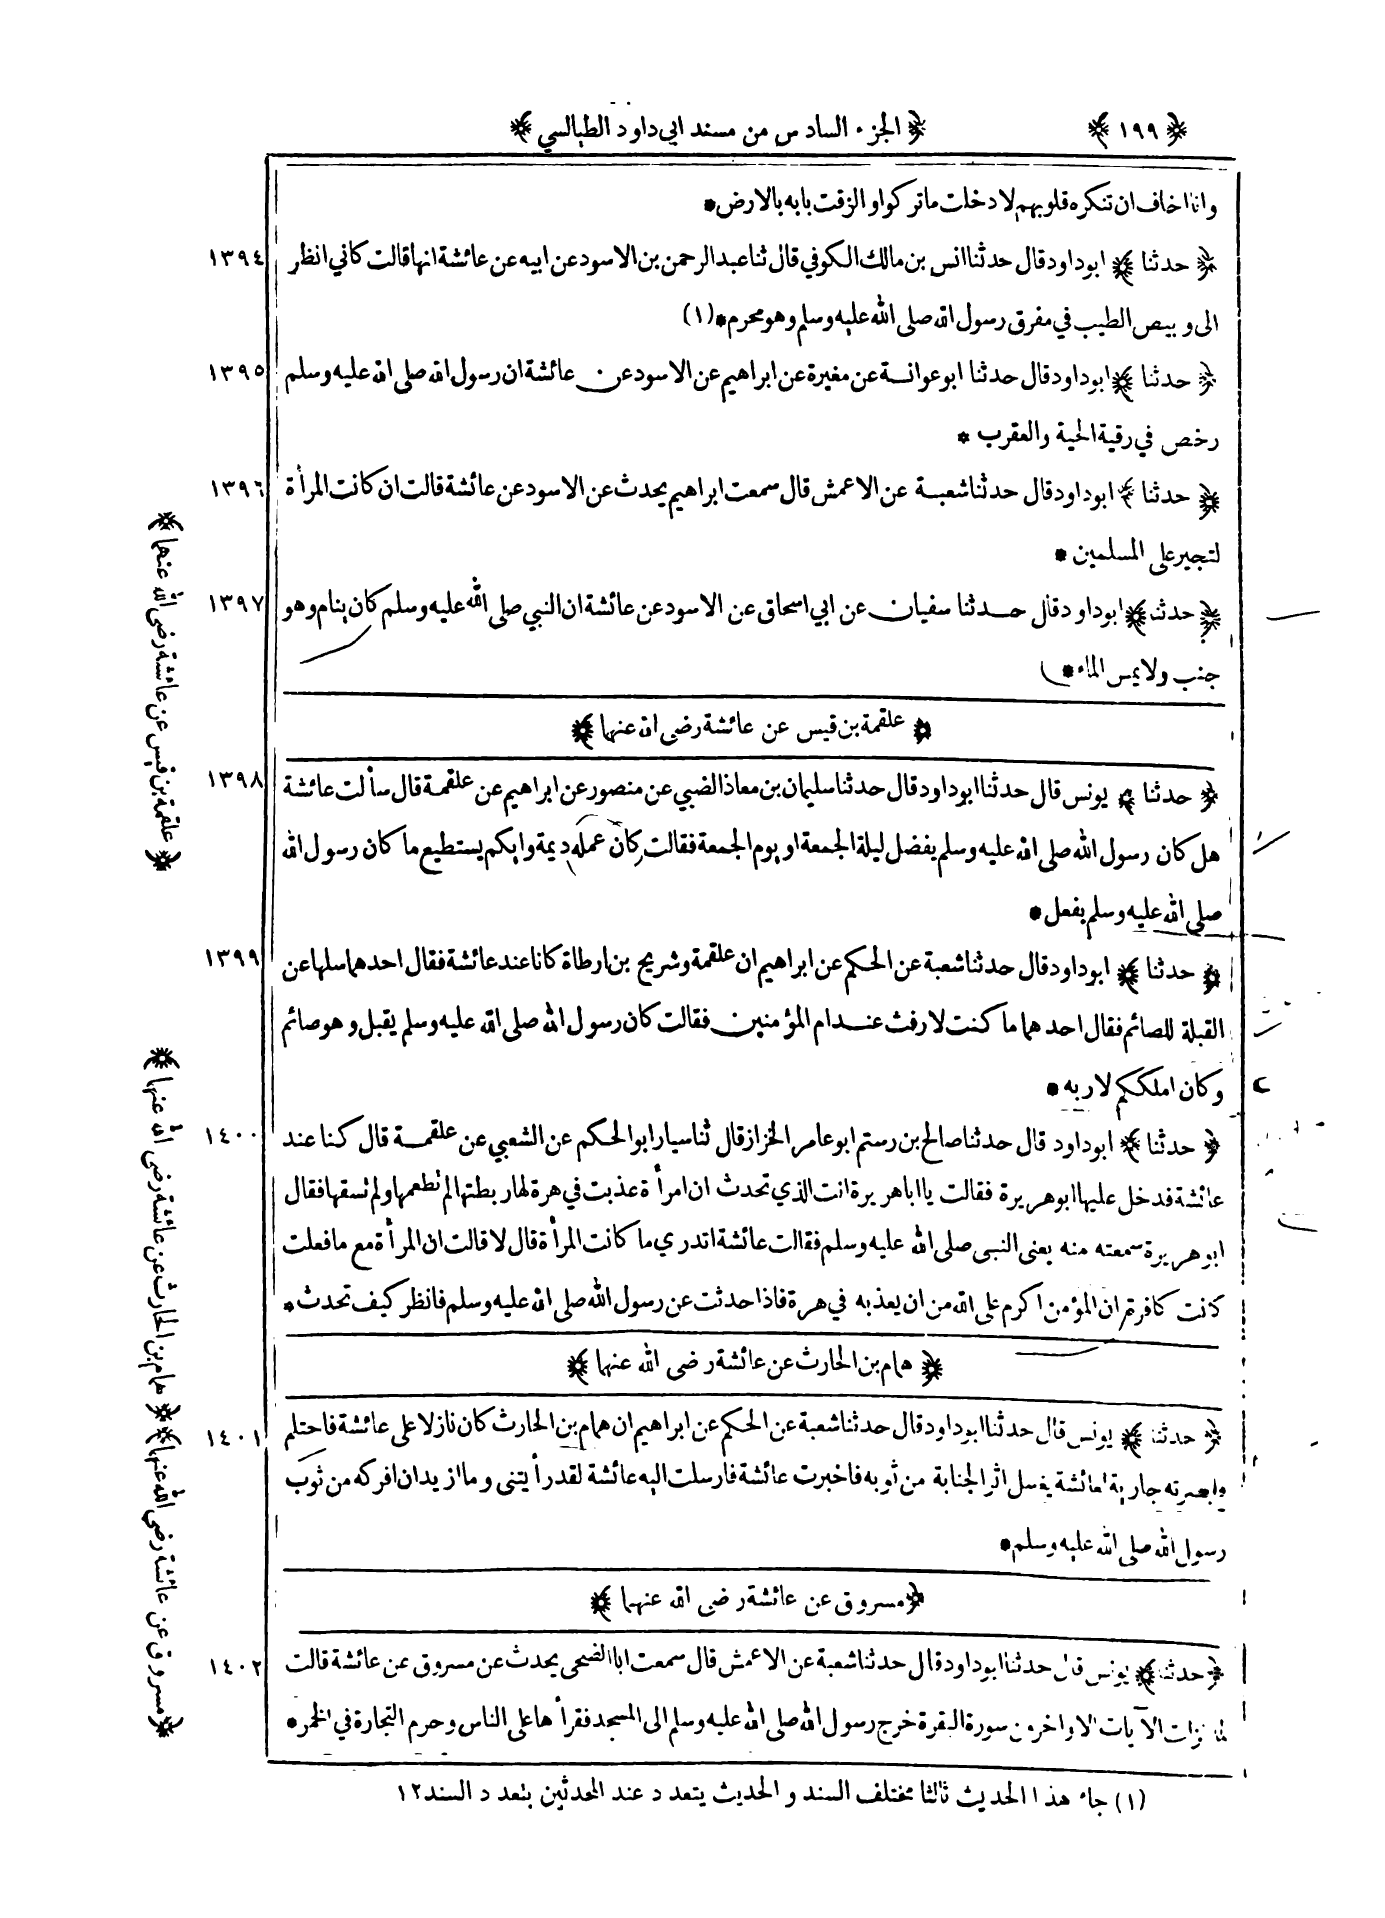 ﴿ ١٩٩ ﴾ ﴿ الجزء السادس من مسند ابي داود الطيالسي ﴾
وانا اخاف ان تنكره قلوبهم لادخلت ما تركوا والزقت بابه بالارض *
﴿ حدثنا ﴾ ابوداود قال حدثنا انس بن مالك الكوفي قال ثنا عبدالرحمن بن الاسود عن ابيه عن عائشة انها قالت كاني انظر ١٣٩٤
الى وبيص الطيب في مفرق رسول الله صلى الله عليه وسلم وهو محرم * (١)
﴿ حدثنا ﴾ ابوداود قال حدثنا ابوعوانة عن مغيرة عن ابراهيم عن الاسود عن عائشة ان رسول الله صلى الله عليه وسلم ١٣٩٥
رخص في رقية الحية والعقرب *
﴿ حدثنا ﴾ ابوداود قال حدثنا شعبة عن الاعمش قال سمعت ابراهيم يحدث عن الاسود عن عائشة قالت ان كانت المرأة ١٣٩٦
لتجير على المسلمين *
﴿ حدثنا ﴾ ابوداود قال حدثنا سفيان عن ابي اسحاق عن الاسود عن عائشة ان النبي صلى الله عليه وسلم كان ينام وهو ١٣٩٧
جنب ولا يمس الماء *
﴿ علقمة بن قيس عن عائشة رضى الله عنها ﴾
﴿ حدثنا ﴾ يونس قال حدثنا ابوداود قال حدثنا سليمان بن معاذ الضبي عن منصور عن ابراهيم عن علقمة قال سألت عائشة ١٣٩٨
هل كان رسول الله صلى الله عليه وسلم يفضل ليلة الجمعة او يوم الجمعة فقالت كان عمله ديمة وايكم يستطيع ما كان رسول الله
صلى الله عليه وسلم يفعل *
﴿ حدثنا ﴾ ابوداود قال حدثنا شعبة عن الحكم عن ابراهيم ان علقمة وشريح بن ارطاة كانا عند عائشة فقال احدهما سلها عن ١٣٩٩
القبلة للصائم فقال احدهما ما كنت لارفث عند ام المؤمنين فقالت كان رسول الله صلى الله عليه وسلم يقبل وهو صائم
وكان املككم لاربه *
﴿ حدثنا ﴾ ابوداود قال حدثنا صالح بن رستم ابوعامر الخزاز قال ثنا سيار ابوالحكم عن الشعبي عن علقمة قال كنا عند ١٤٠٠
عائشة فدخل عليها ابوهريرة فقالت يا اباهريرة انت الذي تحدث ان امرأة عذبت في هرة لها ربطتها لم تطعمها ولم تسقها فقال
ابوهريرة سمعته منه يعنى النبي صلى الله عليه وسلم فقالت عائشة اتدري ما كانت المرأة قال لا قالت ان المرأة مع ما فعلت
كانت كافرة ان المؤمن اكرم على الله من ان يعذبه في هرة فاذا حدثت عن رسول الله صلى الله عليه وسلم فانظر كيف تحدث *
﴿ همام بن الحارث عن عائشة رضى الله عنها ﴾
﴿ حدثنا ﴾ يونس قال حدثنا ابوداود قال حدثنا شعبة عن الحكم عن ابراهيم ان همام بن الحارث كان نازلا على عائشة فاحتلم ١٤٠١
وابصرته جارية لعائشة يغسل اثر الجنابة من ثوبه فاخبرت عائشة فارسلت اليه عائشة لقد رأيتنى وما ازيد ان افركه من ثوب
رسول الله صلى الله عليه وسلم *
﴿ مسروق عن عائشة رضى الله عنها ﴾
﴿ حدثنا ﴾ يونس قال حدثنا ابوداود قال حدثنا شعبة عن الاعمش قال سمعت اباالضحى يحدث عن مسروق عن عائشة قالت ١٤٠٢
لما نزلت الآيات الاواخر من سورة البقرة خرج رسول الله صلى الله عليه وسلم الى المسجد فقرأها على الناس وحرم التجارة في الخمر *
(١) جاء هذا الحديث ثالثا مختلف السند والحديث يتعدد عند المحدثين بتعدد السند ١٢
﴿ علقمة بن قيس عن عائشة رضى الله عنها ﴾
﴿ همام بن الحارث عن عائشة رضى الله عنها ﴾
﴿ مسروق عن عائشة رضى الله عنها ﴾